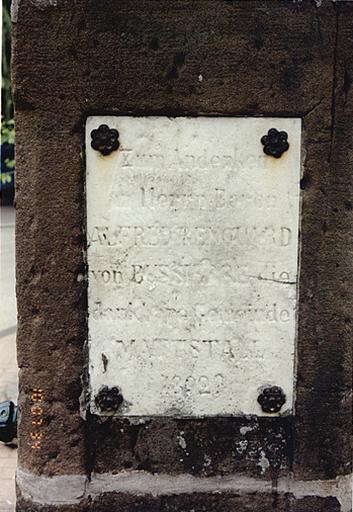 Zum Andenken
an Herrn Baron
ALFRED RENOUARD
von BUSSIERRE die
dankbare Gemeinde
MATTSTALL